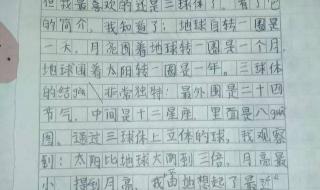 但我最喜欢的还是三球体了,看了它
的简介,我知道了:地球自转一圈是
一天,月亮围着地球转一圈是一个月,
地球围着太阳转一圈是一年。三球体
的结构非常独特:最外围是二十四
节气,中间是十二星座,里面是八
图。透过三球体上立体的球,我观察
到:太阳比地球大两到三倍,月亮最
小。提到月亮,我由地想起了最近